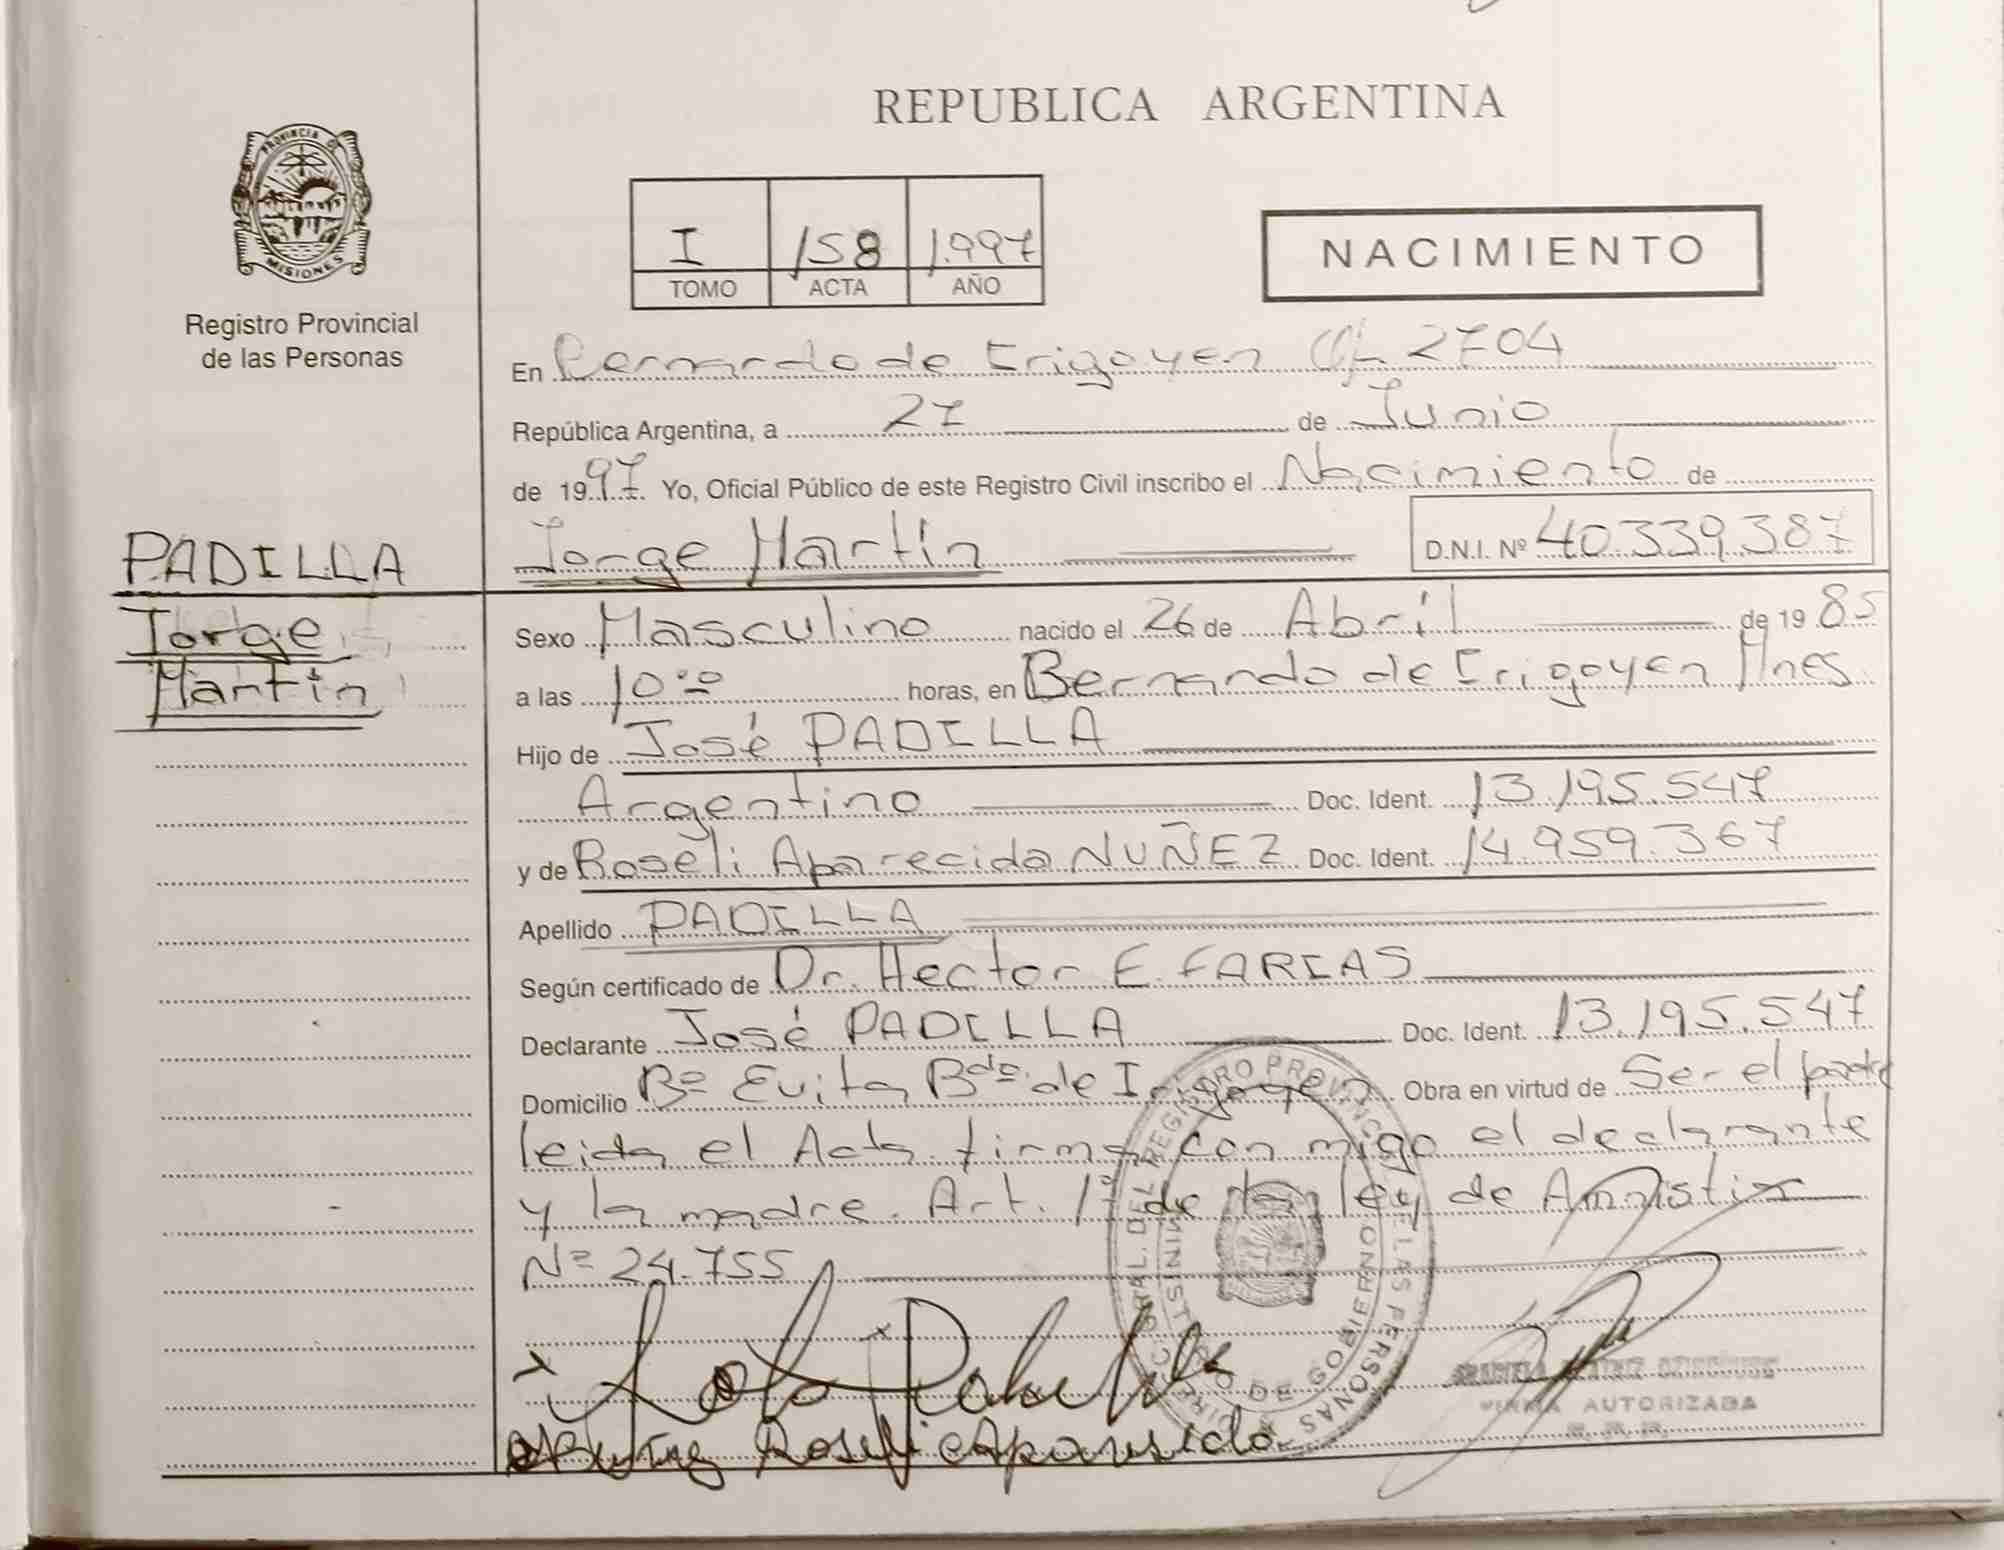 REPUBLICA ARGENTINA
PROVINCIA DE
MISIONES
Registro Provincial
de las Personas
I 158 1.997
TOMO ACTA AÑO
NACIMIENTO
En Bernardo de Irigoyen 2704
República Argentina, a 27 de Junio
de 1997. Yo, Oficial Público de este Registro Civil inscribo el Nacimiento de
PADILLA
Jorge Martín
D.N.I. Nº 40339387
Jorge
Martín
Sexo Masculino nacido el 26 de Abril de 1985
a las 10:00 horas, en Bernardo de Irigoyen Mnes.
Hijo de José PADILLA
Argentino Doc. Ident. 13.195.547
y de Roseli Aparecida NUÑEZ Doc. Ident. 14.959.367
Apellido PADILLA
Según certificado de Dr. Hector E. FARIAS
Declarante José PADILLA Doc. Ident. 13.195.547
Domicilio Bº Evita Bdo. de Irigoyen Obra en virtud de Ser el padre
leida el Acta firma con migo el declarante
y la madre. Art. 1º de la ley de Amnistia
Nº 24.755
REGISTRO PROVINCIAL DE LAS PERSONAS
MINISTERIO DE GOBIERNO
FIRMA AUTORIZADA